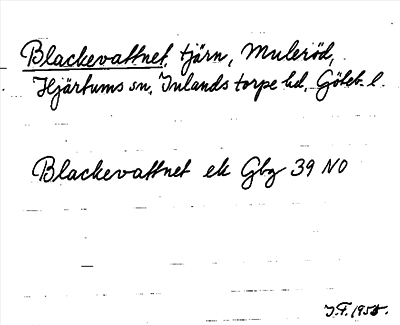 Blackevattnet, tjärn, Muleröd,
Hjärtums sn, Inlands torpe hd, Göteb. l.
Blackevattnet ek Gbg 39 NO
J.F. 1958.